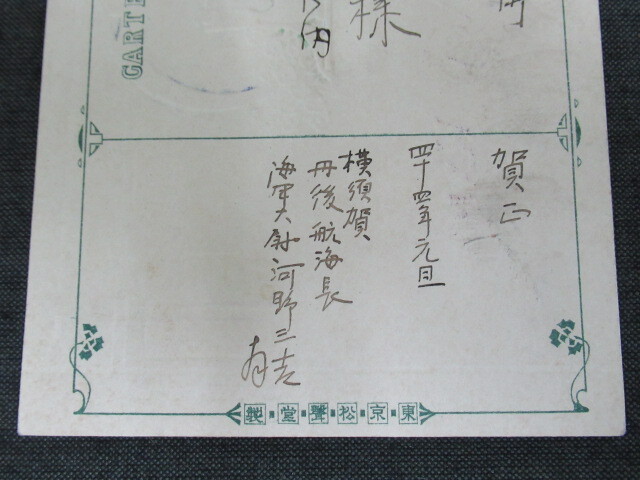 CARTE
様
内
賀正
四十四年元旦
横須賀
丹後航海長
海軍大尉河野三吉
東京松聲堂製